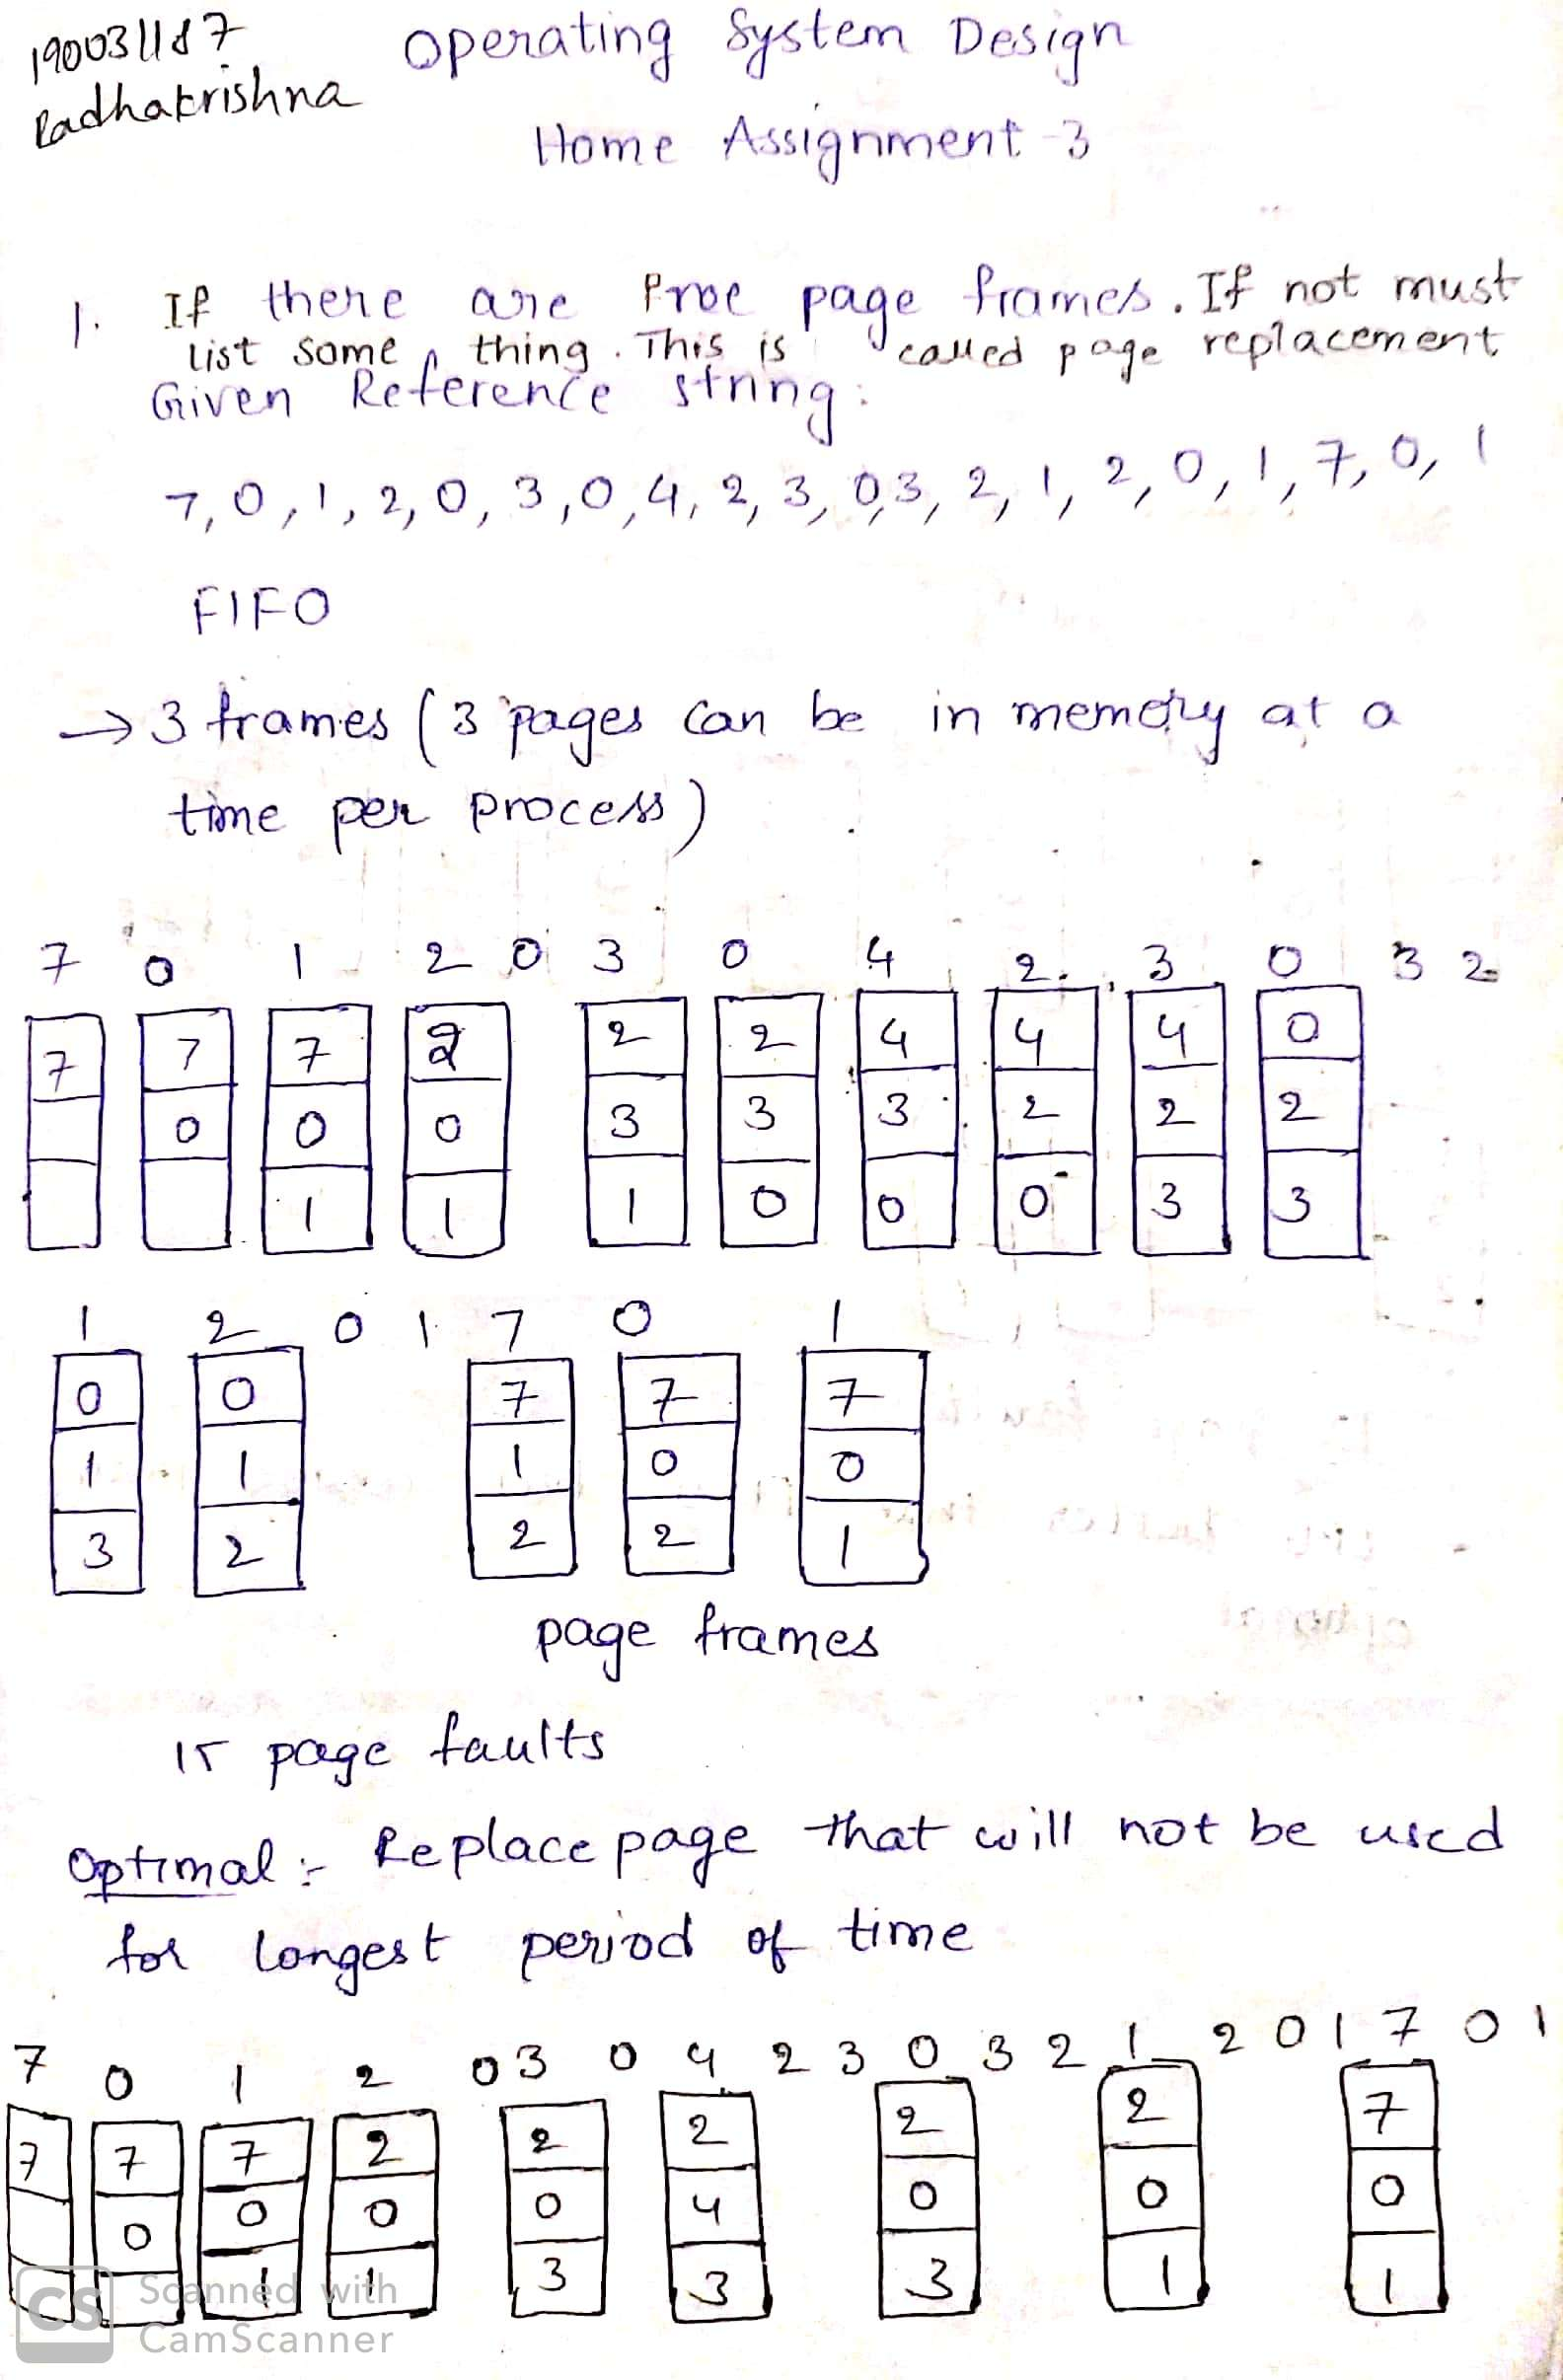 190031187
Radhakrishna
Operating System Design
Home Assignment-3
1. If there are free page frames. If not must
list some thing. This is called page replacement
Given Reference string:
7,0,1,2,0,3,0,4,2,3,0,3,2,1,2,0,1,7,0,1
FIFO
→ 3 frames (3 pages can be in memory at a
time per process)
7 0 1 2 0 3 0 4 2 3 0 3 2
7 7 7 2 2 2 4 4 4 0
0 0 0 3 3 3 2 2 2
1 1 1 0 0 0 3 3
1 2 0 1 7 0 1
0 0 7 7 7
1 1 1 0 0
3 2 2 2 1
page frames
15 page faults
Optimal :- Replace page that will not be used
for longest period of time
7 0 1 2 0 3 0 4 2 3 0 3 2 1 2 0 1 7 0 1
7 7 7 2 2 2 2 2 7
0 0 0 0 4 0 0 0
1 1 3 3 3 1 1
CS Scanned with
CamScanner